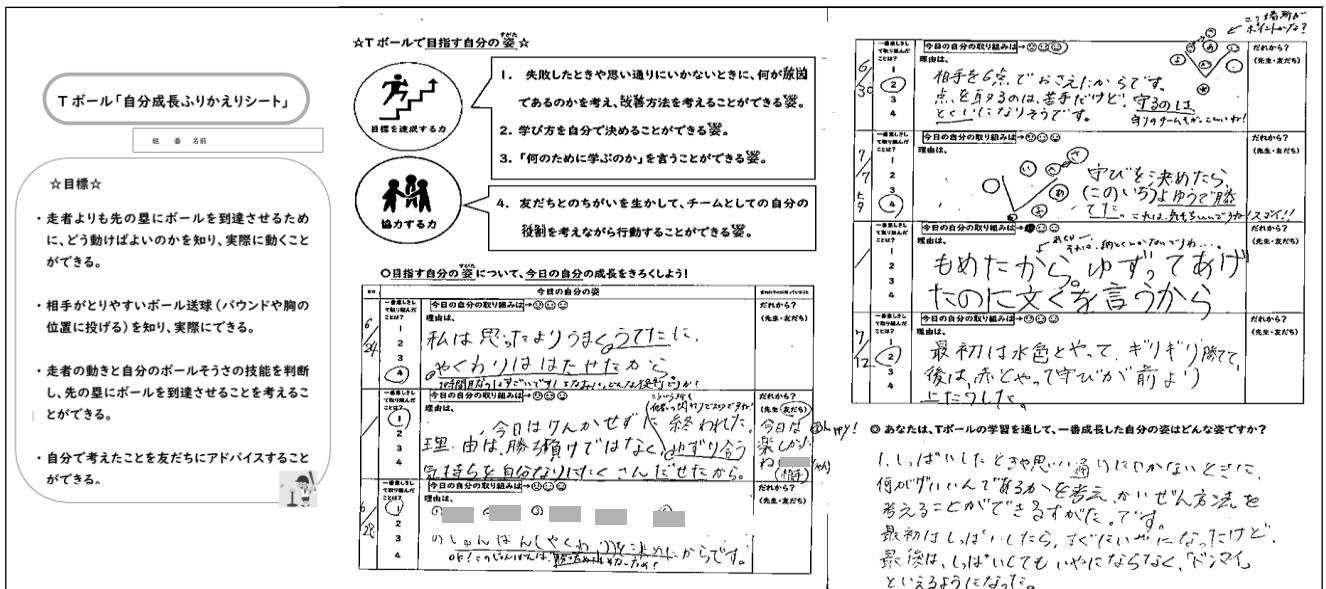 Tボール「自分成長ふりかえりシート」
組 番 名前
☆目標☆
・走者よりも先の塁にボールを到達させるため
に、どう動けばよいのかを知り、実際に動くこと
ができる。
・相手がとりやすいボール送球(バウンドや胸の
位置に投げる)を知り、実際にできる。
・走者の動きと自分のボールそうさの技能を判断
し、先の塁にボールを到達させることを考えるこ
とができる。
・自分で考えたことを友だちにアドバイスすること
ができる。
☆Tボールで目指す自分の姿☆
すがた
目標を達成する力
1. 失敗したときや思い通りにいかないときに、何が原因
であるのかを考え、改善方法を考えることができる姿。
2. 学び方を自分で決めることができる姿。
3. 「何のために学ぶのか」を言うことができる姿。
協力する力
4. 友だちとのちがいを生かして、チームとしての自分の
役割を考えながら行動することができる姿。
〇目指す自分の姿について、今日の自分の成長をきろくしよう!
すがた
今日の自分の姿
6/24
一番意しきし
て取り組んだ
ことは?
1
2
3
4
今日の自分の取り組みは→
理由は、
私は思ったよりうまくうてたに、
やくわりははたせたから。
だれから?
(先生・友だち)
一番意しきし
て取り組んだ
ことは?
1
2
3
4
今日の自分の取り組みは→
理由は、
今日はけんかせずに終われた。
理由は、勝ち負けではなく、ゆずり合う
気持ちを自分なりにたくさんだせたから。
だれから?
(先生・友だち)
今日は
楽しかた
ね
(相手)
6/28
一番意しきし
て取り組んだ
ことは?
1
2
3
4
今日の自分の取り組みは→
理由は、
のじゅんばん(やくわり)を決めたからです。
だれから?
(先生・友だち)
6/30
一番意しきし
て取り組んだ
ことは?
1
2
3
4
今日の自分の取り組みは→
理由は、
相手を6点でおさえたからです。
点を取るのは、苦手だけど、守るのは、
とくいになりそうです。
ここの場所が
ポイントかな?
だれから?
(先生・友だち)
7/7
一番意しきし
て取り組んだ
ことは?
1
2
3
4
今日の自分の取り組みは→
理由は、
守びを決めたら
(このいち)よゆうで勝
てた。
だれから?
(先生・友だち)
一番意しきし
て取り組んだ
ことは?
1
2
3
4
今日の自分の取り組みは→
理由は、
もめたから。ゆずってあげ
たのに文くを言うから
だれから?
(先生・友だち)
7/12
一番意しきし
て取り組んだ
ことは?
1
2
3
4
今日の自分の取り組みは→
理由は、
最初は水色とやって、ギリギリ勝てて、
後は、赤とやって守びが前より
上たつした。
だれから?
(先生・友だち)
◎ あなたは、Tボールの学習を通して、一番成長した自分の姿はどんな姿ですか?
1.しっぱいしたときや思い通りにいかないときに、
何がげいいんであるかを考え、かいぜん方法を
考えることができるすがた。です。
最初はしっぱいしたら、すぐにいやになったけど、
最後は、しっぱいしてもいやにならなく、「ドンマイ」
といえるようになった。